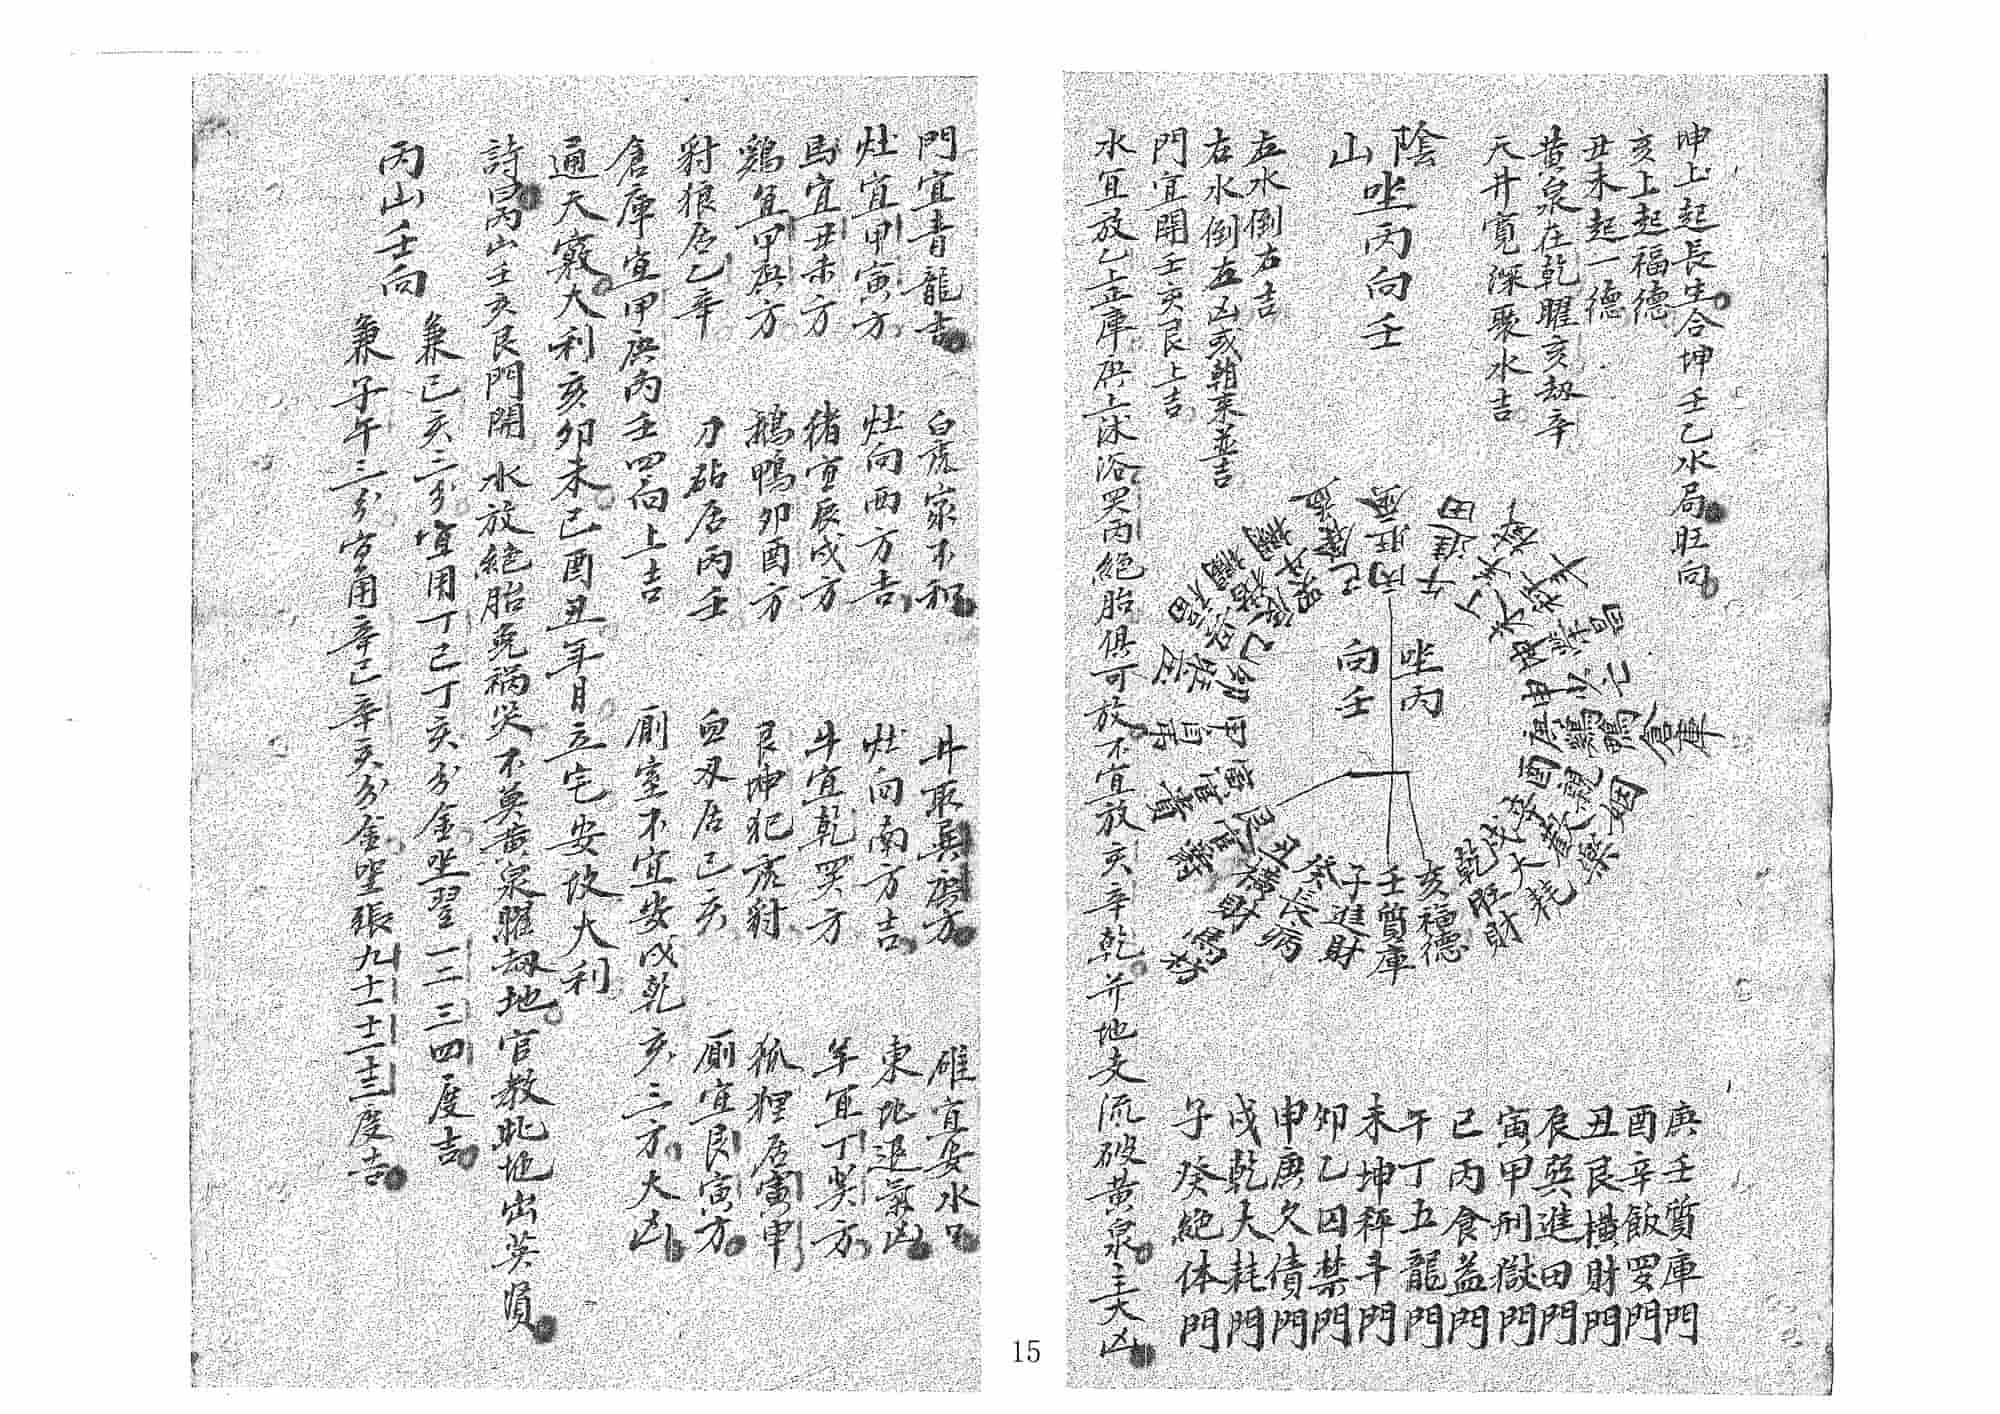 坤上起長生合坤壬乙水局旺向
亥上起福德
丑未起一德
黄泉在乾曜亥劫辛
天井寛深聚水吉
陰山坐丙向壬
左水倒右吉
右水倒左凶或朝来並吉
門宜開壬亥艮上吉
水宜放乙上正庫庚上沐浴巽丙絶胎俱可放不宜放亥辛乾并地支流破黄泉主大凶
坐丙
向壬
亥福德
壬質庫
子進財
癸長病
丑横財
乾旺財
倉庫
庚壬質庫門
酉辛飯罗門
丑艮横財門
辰巽進田門
寅甲刑獄門
己丙食益門
午丁五龍門
未坤秤斗門
卯乙囚禁門
申庚欠債門
戌乾大耗門
子癸絶体門
門宜青龍吉 白虎家不和 井取巽庚方 碓宜安水口
灶宜甲寅方 灶向西方吉 灶向南方吉 東北退氣凶
馬宜丑未方 猪宜辰戌方 牛宜乾巽方 羊宜丁巽方
鷄宜甲庚方 鵝鴨卯酉方 艮坤犯虎豺 狐狸居寅申
豺狼居乙辛 刀砧居丙壬 血刃居己亥 廁宜艮寅方
倉庫宜甲庚丙壬四向上吉 廁室不宜安戌乾亥三方大凶
通天竅大利亥卯未己酉丑年月立宅安坟大利
詩曰丙山壬亥艮門開 水放絶胎免禍災 不莫黄泉曜劫地 官教此地出英員
丙山壬向
兼己亥二分宜用丁己丁亥分金坐翌一二三四度吉
兼子午三分宜用辛己辛亥分金坐張九十十一十二十三度吉
15